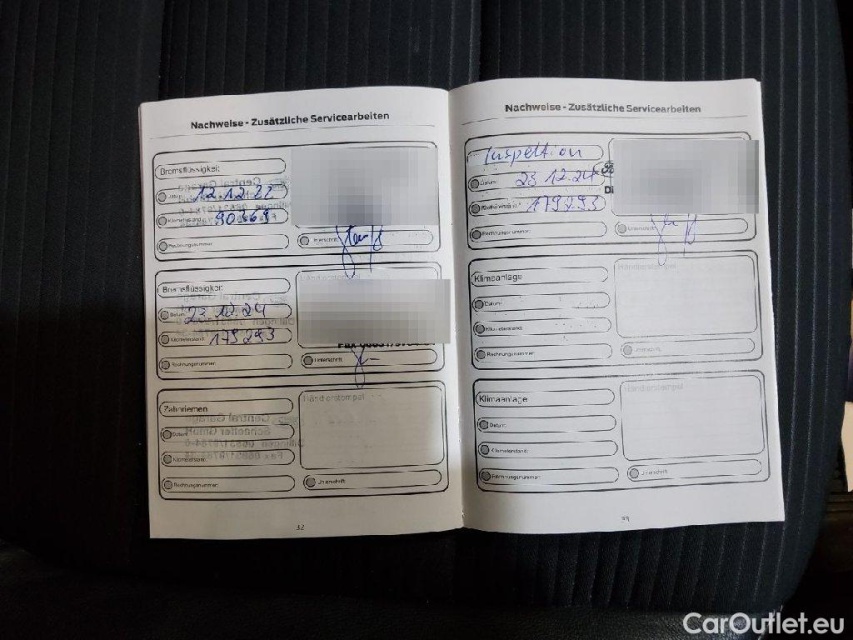 Nachweise - Zusätzliche Servicearbeiten
Bremsflüssigkeit
Datum 12.12.22
Kilometerstand 90669
Rechnungsnummer
Unterschrift
Bremsflüssigkeit
Händlerstempel
Datum 23.12.24
Kilometerstand 179293
Rechnungsnummer
Unterschrift
Zahnriemen
Händlerstempel
Datum
Kilometerstand
Rechnungsnummer
Unterschrift
32
Nachweise - Zusätzliche Servicearbeiten
Inspektion
Datum 23.12.24
Kilometerstand 179293
Rechnungsnummer
Unterschrift
Klimaanlage
Händlerstempel
Datum
Kilometerstand
Rechnungsnummer
Unterschrift
Klimaanlage
Händlerstempel
Datum
Kilometerstand
Rechnungsnummer
Unterschrift
CarOutlet.eu